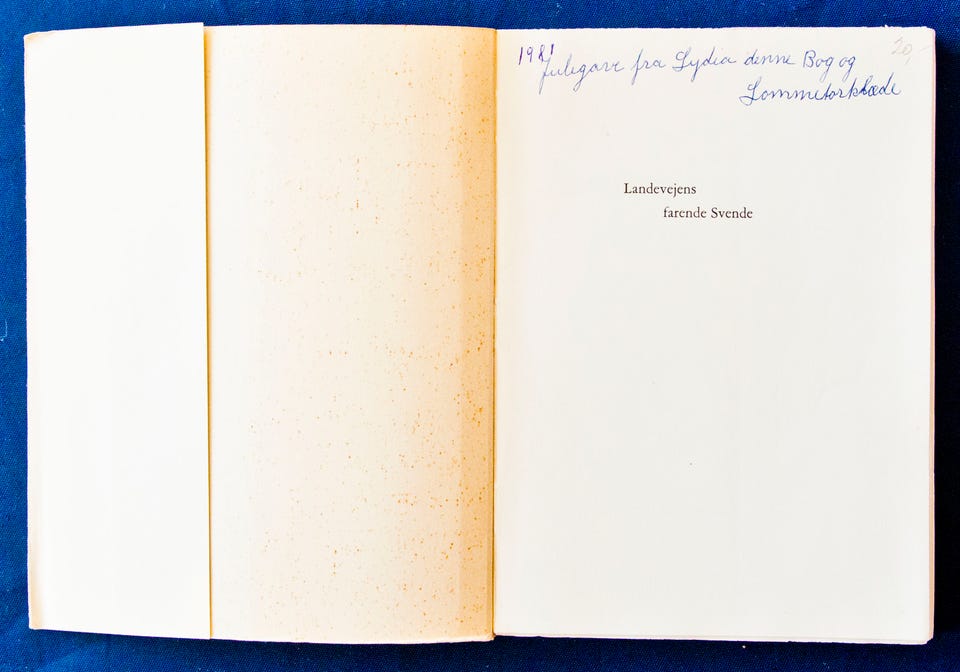 1981 Julegave fra Lydia denne Bog og
Lommetørklæde
20,
Landevejens
farende Svende